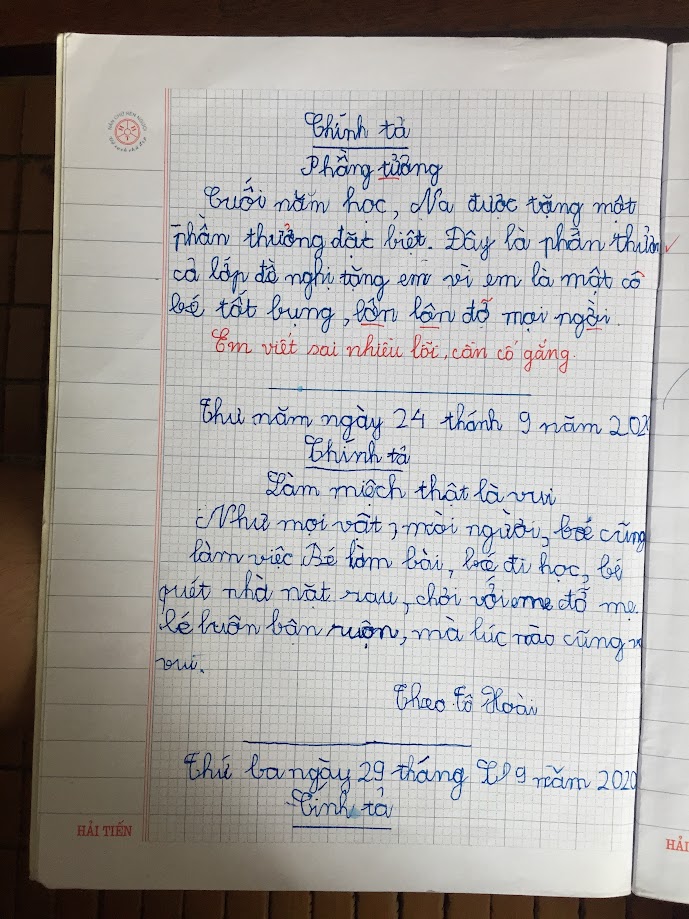 Chính tả
Phầng tưởng
Cuối năm học, Na được tặng một
phần thưởng đặt biệt. Đây là phần thưởn
cả lớp đề nghị tặng em vì em là một cô
bé tốt bụng, lôn lôn đỡ mọi ngời.
Em viết sai nhiều lỗi, cần cố gắng.
Thư năm ngày 24 thánh 9 năm 202
Chính tả
Làm miệch thật là vui
Như mọi vật, mòi người, bé cũng
làm việc Bé làm bài, bé đi học, bé
quét nhà nặt rau, chơi với em đỡ mẹ.
bé luôn bận ruộn, mà lúc nào cũng v
vui.
Theo Tô Hoài
Thứ ba ngày 29 tháng 9 năm 2020
Tính tả
HẢI TIẾN
HẢI